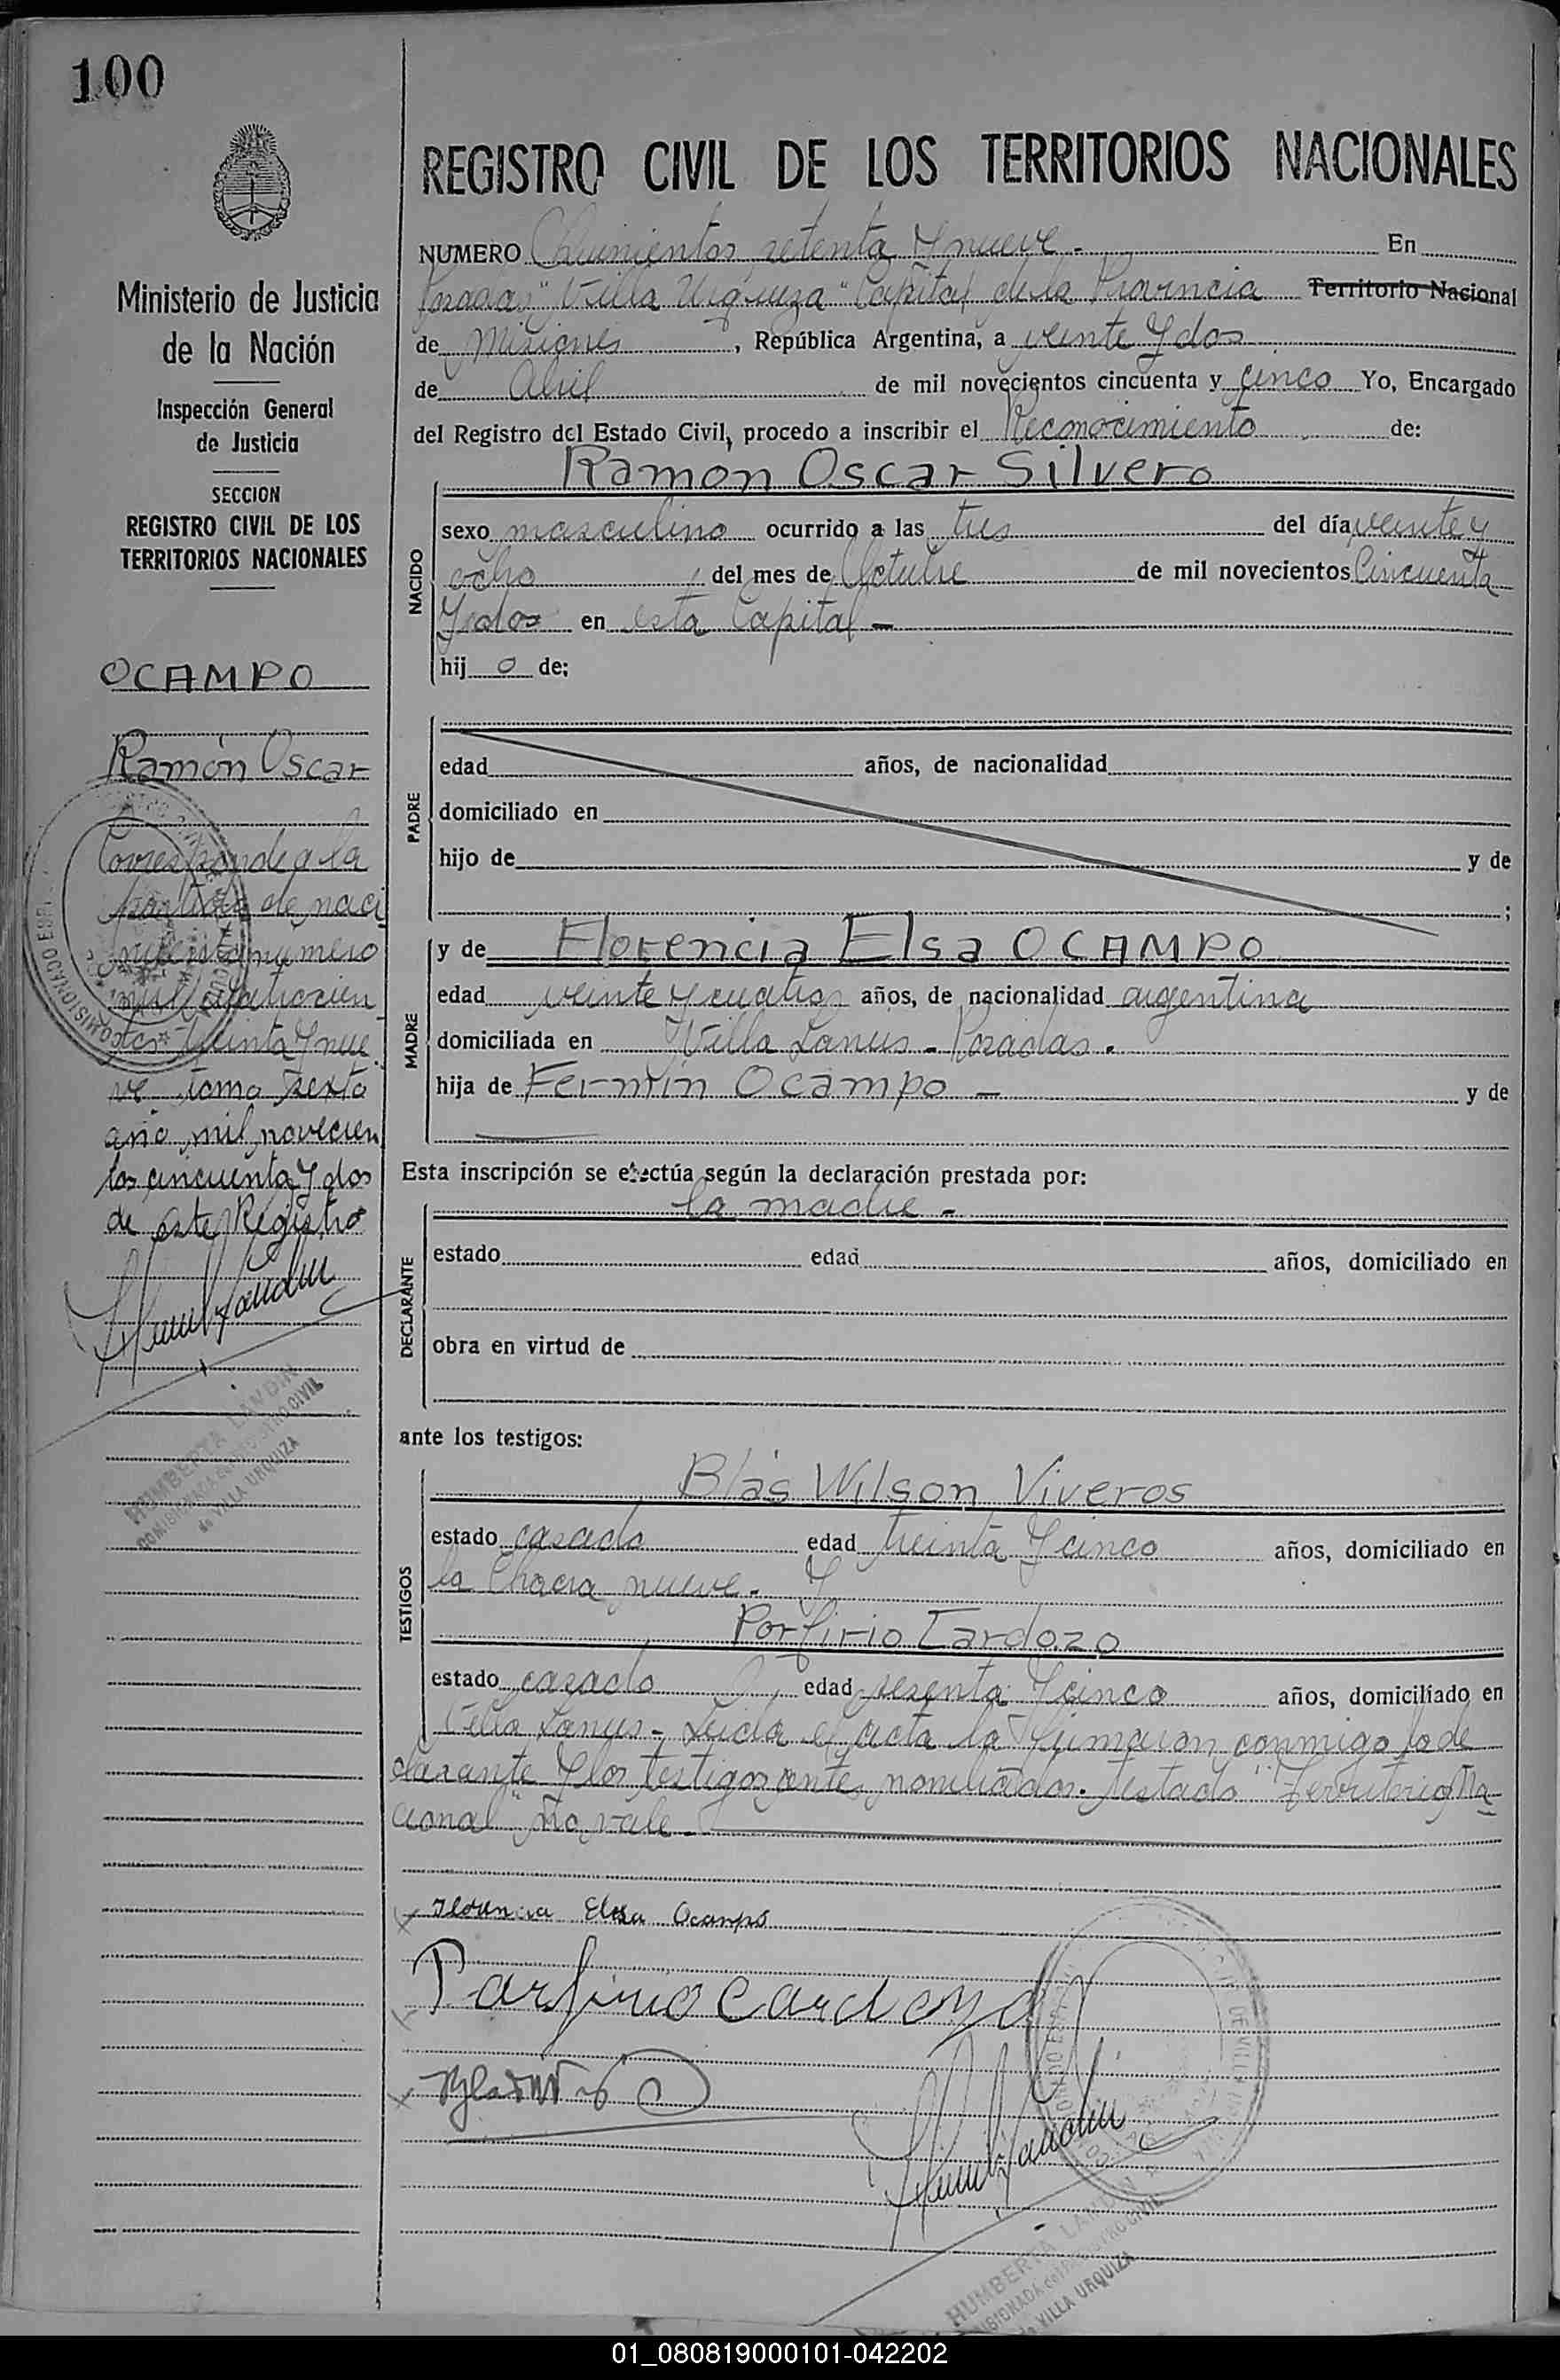 100
REGISTRO CIVIL DE LOS TERRITORIOS NACIONALES
Ministerio de Justicia
de la Nación
Inspección General
de Justicia
SECCION
REGISTRO CIVIL DE LOS
TERRITORIOS NACIONALES
OCAMPO
Ramón Oscar
Corresponde a la
partida de naci
miento numero
mil cuatrocien
tos treinta y nue
ve tomo sexto
año mil novecien
tos cincuenta y dos
de este Registro
HUMBERTA LANDIN
COMISIONADA del REGISTRO CIVIL
de VILLA URQUIZA
NUMERO Quinientos setenta y nueve.- En
Posadas "Villa Urquiza" Capital de la Provincia Territorio Nacional
de Misiones, República Argentina, a veinte y dos
de Abril de mil novecientos cincuenta y cinco Yo, Encargado
del Registro del Estado Civil, procedo a inscribir el Reconocimiento de:
Ramon Oscar Silvero
NACIDO
sexo masculino ocurrido a las tres del día veinte y
ocho, del mes de Octubre de mil novecientos Cincuenta
y dos en esta Capital -
hij o de;
PADRE
edad años, de nacionalidad
domiciliado en
hijo de y de
;
MADRE
y de Florencia Elsa OCAMPO
edad veinte y cuatro años, de nacionalidad argentina
domiciliada en Villa Lanús - Posadas.
hija de Fermín Ocampo - y de
Esta inscripción se efectúa según la declaración prestada por:
la madre -
DECLARANTE
estado edad años, domiciliado en
obra en virtud de
ante los testigos:
TESTIGOS
Blás Wilson Viveros
estado casado edad treinta y cinco años, domiciliado en
la Chacra nueve. y
Porfirio Cardozo
estado casado edad sesenta y cinco años, domiciliado en
Villa Lanus - Leida el acta la firmaron conmigo la de
clarante y los testigos antes nombrados. Testado "Territorio Na
cional" no vale.
Florencia Elsa Ocampo
Parfirio Cardozo
HUMBERTA LANDIN
COMISIONADA del REGISTRO CIVIL
de VILLA URQUIZA
01_080819000101-042202